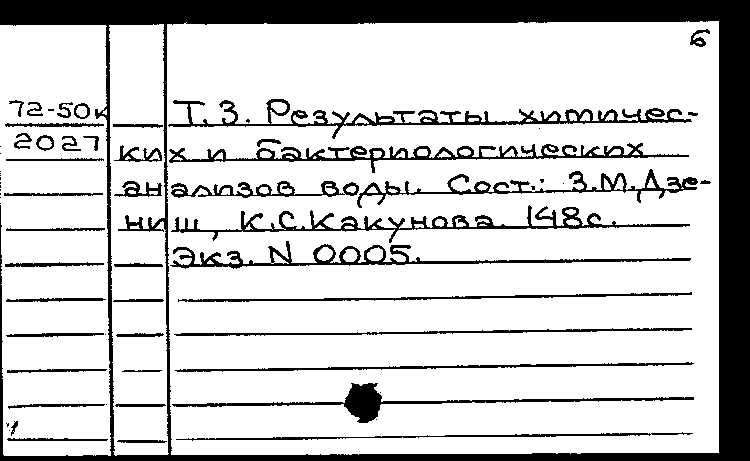 6
72-50к Т. 3. Результаты химичес-
2027 ких и бактериологических
анализов воды. Сост.: З.М.Дзе-
ниш, К.С.Какунова. 148с.
Экз. N 0005.